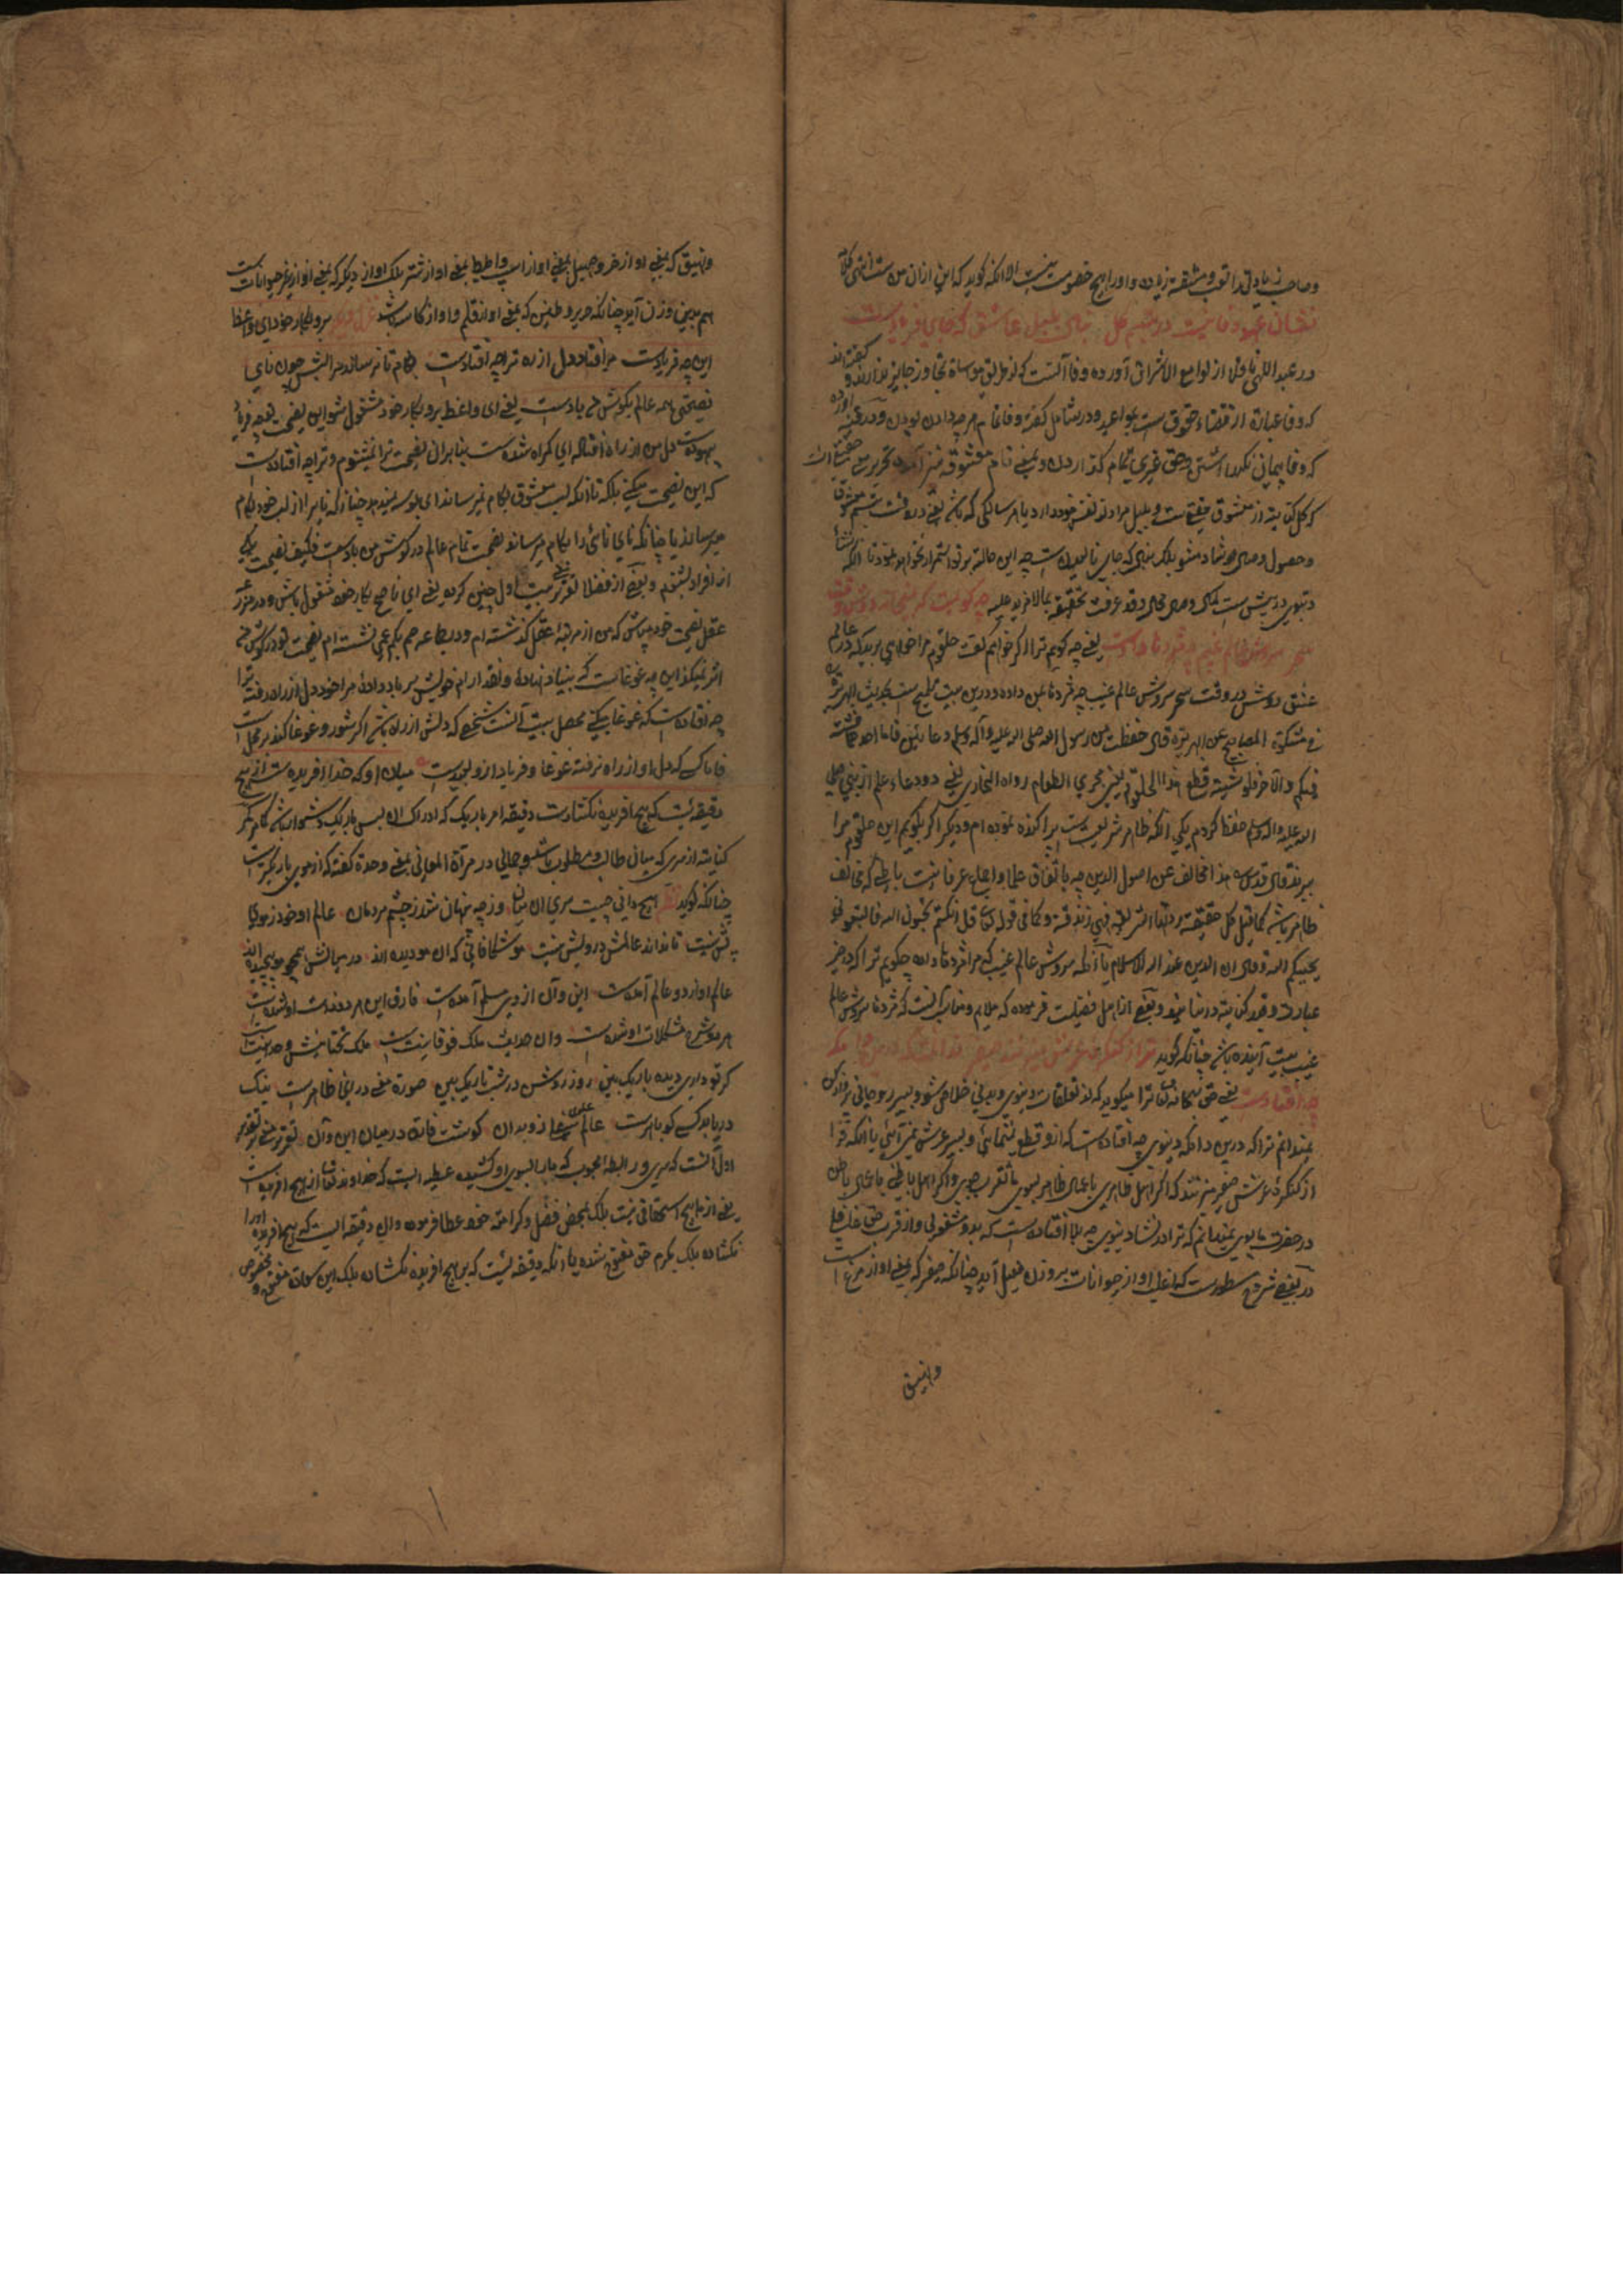 وصاحب زیادتی را تعب و مشقت زیاده و او را هیچ خصومت نیست الا آنکه گوید که این از آن من است انتهی کلامه
نشان عهد و وفا نیست در تبسم گل بنال بلبل عاشق که جای فریادست
در عبد اللهی ناقل از لوامع الاشراق آورده وفا آنست که از طریق مواساة تجاوز جایز ندارند و گفته اند
که وفا عبارة از قضاء حقوق است
که وفا پیمانی نگهداشتن و حق غیری تمام گذاردن و بمعنی تمام
که گل کنایت از معشوق حقیقی ست و بلبل مراد از نفس خود دارد یا هر سالکی که باشد یعنی در وقت تبسم معشوق
و حصول وصال او شاد مشو بلکه بنال که جای نالیدن است چه این حالة بر تو استمرار نخواهد نمود
چه گویمت که بمیخانه دوش وقت
سحر سروش عالم غیبم چه مژدها دادست یعنی چه گویم ترا اگر خواهم گفت حلقوم مرا خواهی برید که در عالم
عشق دوش در وقت سحر سروش عالم غیب چه مژدها بمن داده و درین بیت تلمیح است بحدیث ابو هریره
فی مشکوة المصابیح عن ابی هریرة قال حفظت من رسول الله صلی الله علیه و آله وسلم وعائین فاما احدهما فبثثته
فیکم و الآخر فلو بثثته قطع هذا الحلقوم یعنی مجری الطعام رواه البخاری یعنی دو وعاء علم از نبی صلی
الله علیه و اله وسلم حفظ کردم یکی آنکه ظاهر شریعت است پراکنده نموده ام و دیگر اگر بگویم این حلقوم مرا
ببرند قال قدس سره هذا مخالف عن اصول الدین چه باتفاق علما و اجماع عرفا نیست باطنی که مخالف
ظاهر باشد کما قیل کل حقیقة ردتها الشریعة فهی زندقة و کما فی قوله تعالی قل ان کنتم تحبون الله فاتبعونی
یحببکم الله و قال ان الدین عند الله الاسلام یا آنکه سروش عالم غیب که مرا مژدها داده چگویم ترا که در حیز
عبارت و قید کنایة در نیاید و بعضی از اهل فضیلت فرموده که ملایم و مناسب آنست که مژدها سروش عالم
غیب بیت آینده باشد چنانکه گوید ترا ز کنگره عرش میزنند صفیر ندانمت که درین دامگه
چه افتادست یعنی حق سبحانه تعالی ترا میگوید که از تعلقات دنیوی و بدنی خلاص شو و بسیر روحانی
نمیدانم ترا که درین دامگه دنیوی چه افتادست که ازو قطع نمینمائی و بسیر عرش نمی آئی یا آنکه ترا
از کنگره عرش صفیر میزنند که اگر اهل ظاهری باعمال ظاهر بسوی ما تقرب جوی و اگر اهل باطنی باعمال باطن
در حضرت ما بوی نمیدانم که ترا در نشاء دنیوی چه بلا افتادست که بدو مشغولی و از قرب حق غافل
در بعضی شروح مسطورست که اغلب آواز حیوانات بر وزن فعیل آید چنانکه صفیر که بمعنی آواز مرغ است
ونهیق
ونهیق که بمعنی آواز خر و صهیل بمعنی آواز اسپ و اطیط بمعنی آواز شتر بلکه آواز دیگر که بمعنی آواز غیر حیوانات است
هم بدین وزن آید چنانکه صریر و طنین که بمعنی آواز قلم و آواز کاسه باشد غزل برو بکار خود ای واعظ
این چه فریادست مرا فتاد دل از ره ترا چه افتادست بکام تا نرساند مرا لبش چون نای
نصیحت همه عالم بگوش من بادست یعنی ای واعظ برو بکار خود مشغول شو این نصیحت
بیهودست دل من از راه افتاده ای گمراه شده است بنابران نصیحت ترا نمیشنوم و ترا چه افتادست
که این نصیحت میکنی بلکه تا آنکه لب معشوق بکام نمیرساند ای بوسه نمیدهد چنانکه نای را از لب خود بکام
میرساند یا چنانکه نای نائی را بکام میرساند نصیحت تمام عالم در گوش من بادست فکیف نصیحت یکی
از افراد بشنوم و بعضی از فضلا تقریر بیت اول چنین کرده یعنی ای ناصح بکار خود مشغول باش و در
عقل نصیحت خود مپاش که من از مرتبه عقل گذشته ام و در بقاعه صم بکم عمی نشسته ام نصیحت تو در گوش من
اثر نمیکند این چه غوغاست که بنیاد نهادهٔ و نقد آرام خویش بر باد دادهٔ مرا خود دل از راه رفت ترا
چه افتادست که غوغا میکنی محصل بیت آنست شخصی که دلش از راه باشد اگر شور و غوغا کند بر محل است
فاما کسی که دل او از راه نرفته غوغا و فریاد ازو بعیدست میان او که خدا آفریده است از هیچ
دقیقه ایست که هیچ آفریده نگشادست دقیقه امر باریک که ادراک آن بس باریک و دشوار باشد کمر
کنایت از سری که میان طالب و مطلوب باشد جمالی در مرآة المعانی بمعنی وحدة گفته که از موی باریکترست
چنانکه گوید نظم هیچ دانی چیست سر آن میان وز چه پنهان شد ز چشم مردمان عالم او خود ز موی
بیش نیست تا نداند عالمش درویش نیست مو شکافانی که آن مو دیده اند در میانش همچو مو پیچیده اند
عالم او از دو عالم آمدست این و آن از وی مسلم آمدست فارق این هر دو
هر دو شرح مشکلات او شدست وان هدایت ملک فوقانیست ملک تحتانیش
گر تو داری دیده باریک بین روز روشن در شب تاریک بین صورة معنی در اینجا ظاهرست
دریابد کسی کو باهرست عالم علوی شعار زو بدان گوشت فاق در میان این و آن تقریر
اول آنست که سری و رابطه محبوب که ما را بسوی او کشیده عطیه ایست که خداوند تعالی از هیچ آفریدست
یعنی از ما هیچ استحقاقی نیست بلکه بمحض فضل و کرامة خود عطا فرموده و این دقیقه ایست که هیچ آفریده او را
نگشاده بلکه بکرم حق مفتوح شده یا آنکه دقیقه ایست که بر هیچ آفریده نگشاده بلکه این سعادة مفتوح و مخصوص